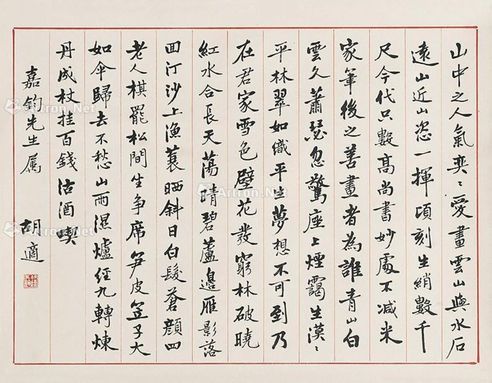 山中之人氣奕奕愛畫雲山與水石
遠山近山恣一揮頃刻生綃數千
尺今代只數高尚書妙處不減米
家筆後之善畫者為誰青山白
雲久蕭瑟忽驚座上煙靄生漠漠
平林翠如織平生夢想不可到乃
在君家雪色壁花發窮林破曉
紅水合長天蕩晴碧蘆邊雁影落
回汀沙上漁蓑晒斜日白髮蒼顏四
老人棋罷松間生爭席笋皮笠子大
如傘歸去不愁山雨濕爐經九轉煉
丹成杖挂百錢沽酒喫
嘉鈞先生屬
胡適